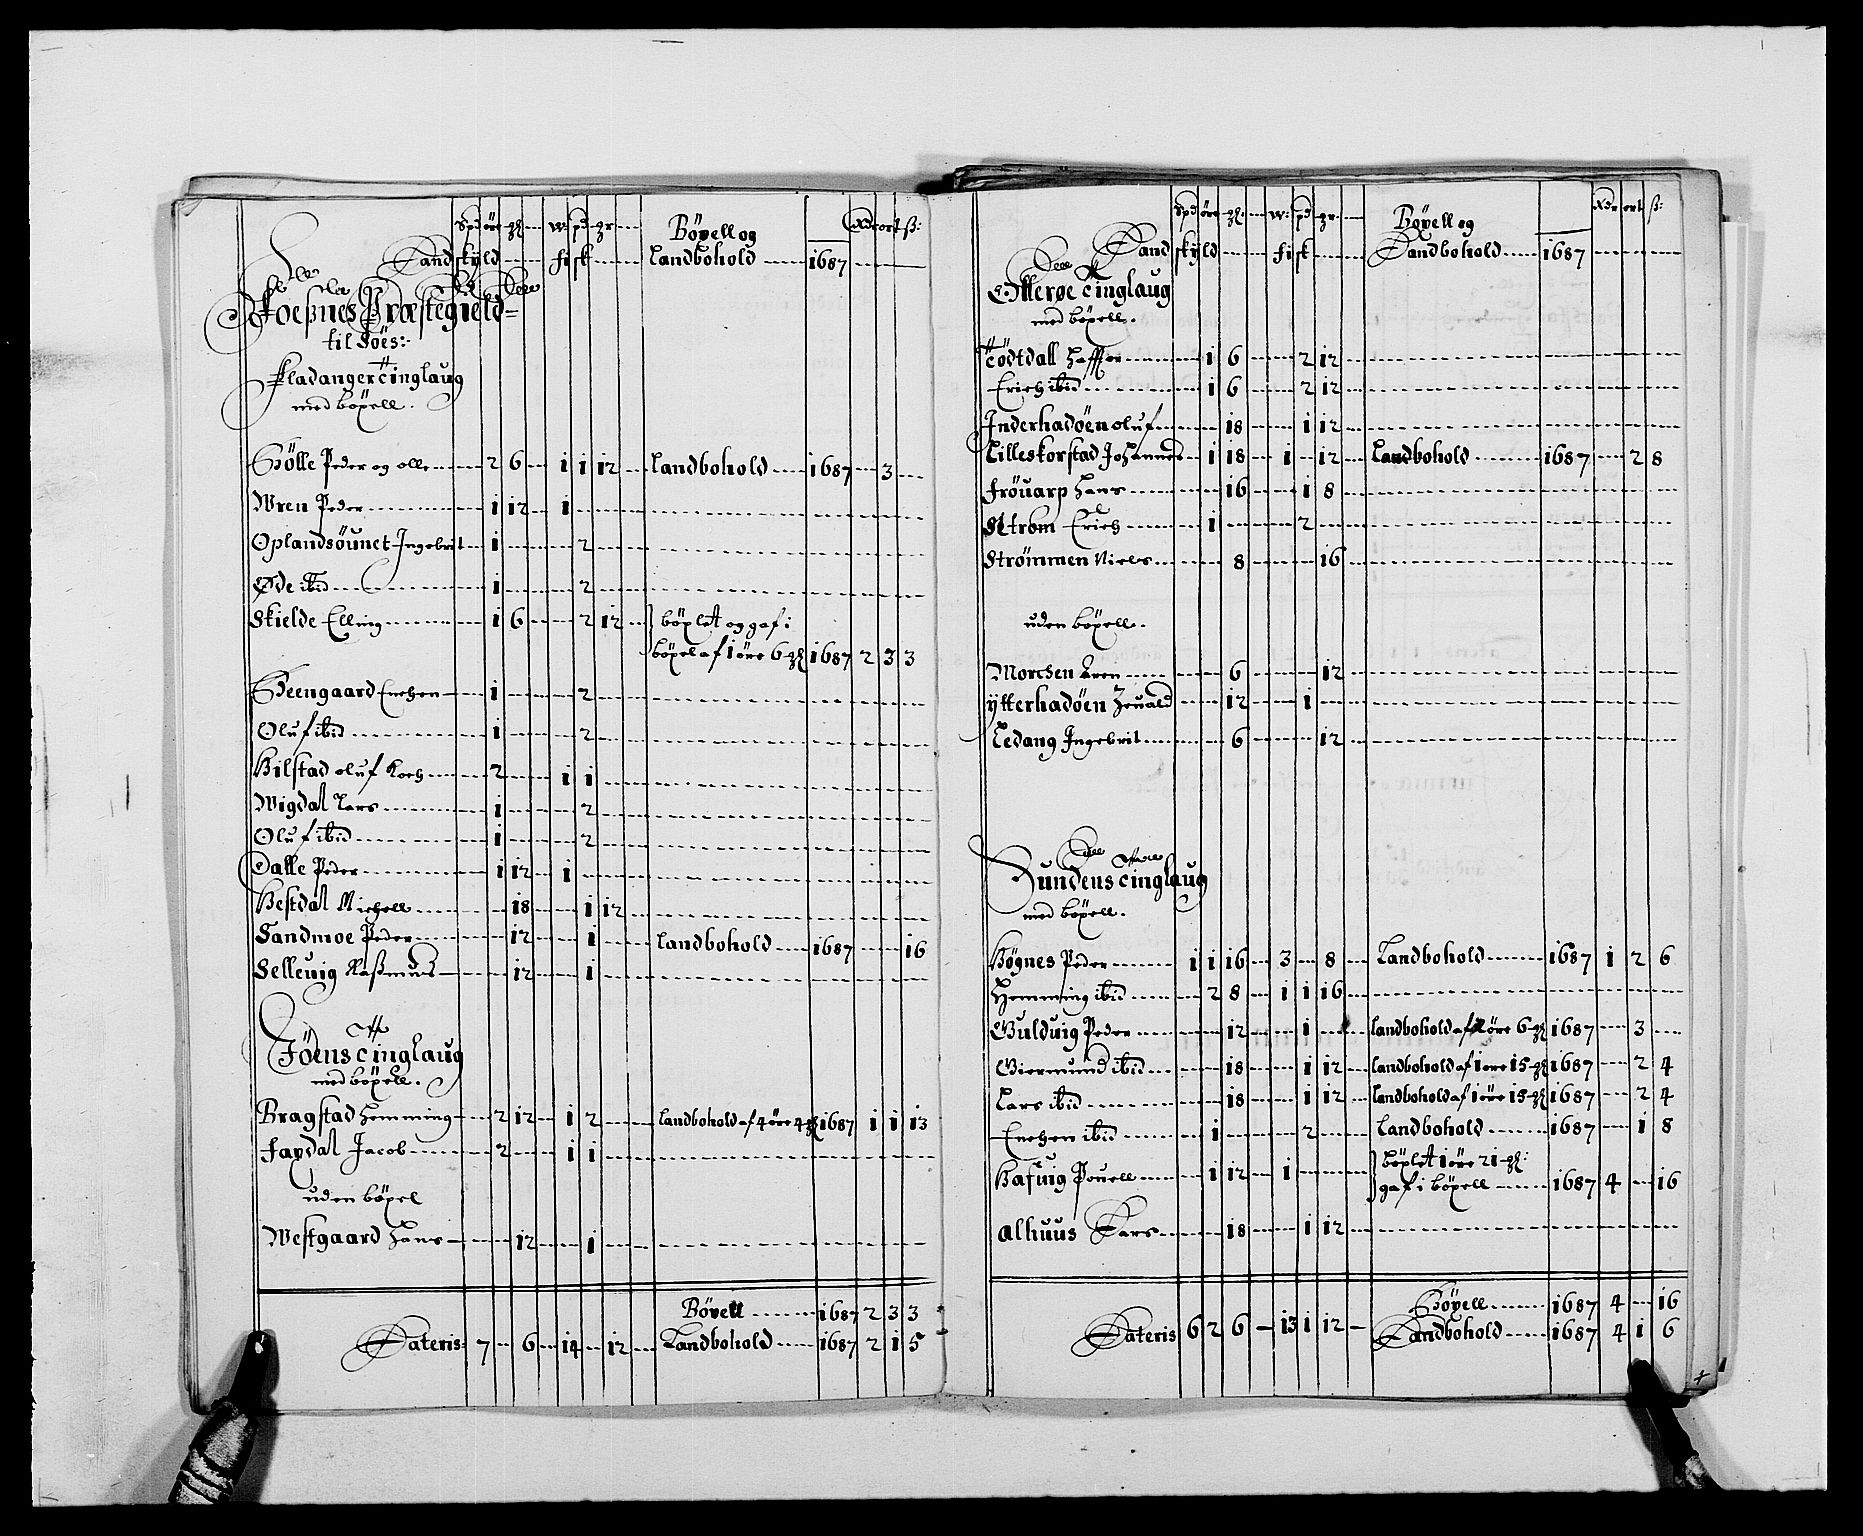 Spd öre gl: w: pd gr Böxell og Rdr ort ß:
Land skyld fisk Landbohold 1687
Foesnes Præstegield
til Söes:
Fladanger Tinglaug
med böxell.
Hölle Peder og olle 2 6 1 1 12 Landbohold 1687 3
Wren Peder 1 12 1
Oplandsöunet Ingebrit 1 2
Øde ibid 1 2
Skielde Elling 1 6 2 12 böxlet og gaf i
böxel af 1 öre 6 gl 1687 2 3 3
Heengaard Enchen 1 2
Oluf ibid 1 2
Hilstad oluf Koch 2 1 1
Wigdal Lars 1 2
Oluf ibid 1 2
Dalle Peder 1 12 1
Hestdal Michell 18 1 12
Sandmoe Peder 12 1 Landbohold 1687 16
Selleuig Raßmus 12 1
Föens Tinglaug
med böxell.
Bragstad Hemming 2 12 1 2 landbohold af 4 öre 4 gl 1687 1 1 13
Faxdal Jacob 2 1 1
uden böxel
Westgaard Hans 12 1
Böxell 1687 2 3 3
Lateris: 7 6 14 12 Landbohold 1687 2 1 5
Spd öre gl: w: pd gr: Böxell og Rdr ort ß:
Land skyld fisk Landbohold 1687
Otterøe Tinglaug
med böxell.
Tödtdall Haffter 1 6 2 12
Erich ibid 1 6 2 12
Inderhadöen oluf 18 1 12
Lilleskorstad Johannes 1 18 1 12 Landbohold 1687 2 8
Fröuarp Hans 16 1 8
Strøm Erich 1 2
Strømmen Niels 8 16
uden böxell.
Morchen Aren 6 12
ytterhadöen Zeuald 12 1
Ledang Ingebrit 6 12
Hundens Tinglaug
med böxell.
Högnes Peder 1 1 16 3 8 Landbohold 1687 1 2 6
Hemming ibid 2 8 1 1 16
Gulduig Peder 12 1 landbohold af 2 öre 6 gl 1687 3
Giermund ibid 18 1 12 landbohold af 1 öre 15 gl 1687 2 4
Lars ibid 18 1 12 landbohold af 1 öre 15 gl 1687 2 4
Enchen ibid 1 2 Landbohold 1687 1 8
Hafuig Pouell 1 12 1 böxlet 1 öre 21 gl:
gaf i böxell 1687 4 16
Alhuus Lars 18 1 12
Böxell 1687 4 16
Lateris 6 2 6 13 1 12 Landbohold 1687 4 1 6